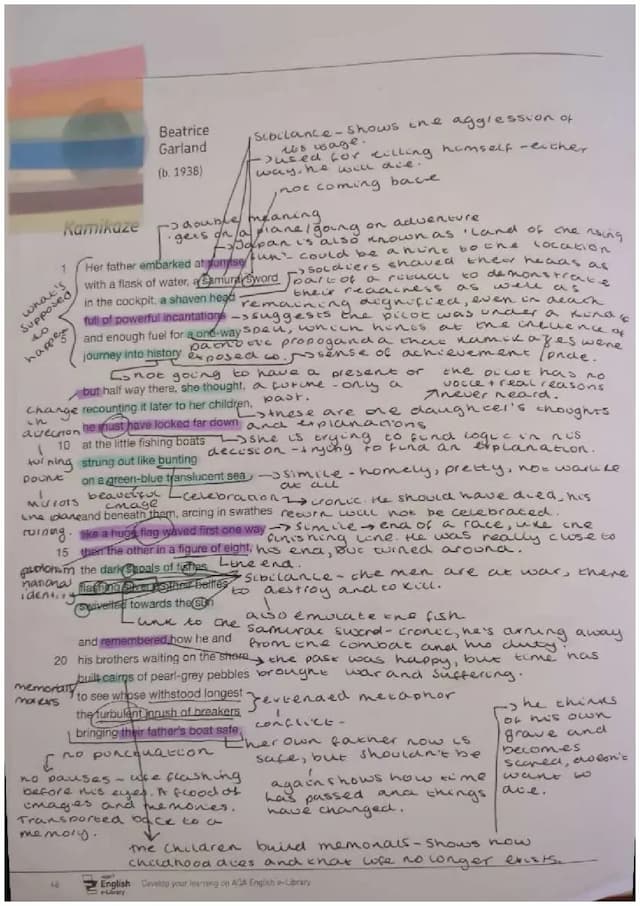 Beatrice
Garland
(b. 1938)
Kamikaze
sibilance - shows the aggression of
his usage.
→ used for killing himself - either
way, he will die.
not coming back
→ double meaning
gets on a plane/going on adventure
→ Japan is also known as 'Land of the rising
sun' - could be a hint to the location
→ soldiers shaved their heads as
part of a ritual to demonstrate
their readiness as well as
remaining dignified, even in death
→ suggests the pilot was under a kind of
spell, which hints at the influence of
patriotic propaganda that kamikazes were
exposed to. → sense of achievement / pride.
what's
supposed
to
happen
1 Her father embarked at sunrise
with a flask of water, a samurai sword
in the cockpit, a shaven head
full of powerful incantations
5 and enough fuel for a one-way
journey into history
→ not going to have a present or
a future - only a
past.
the pilot has no
voice + real reasons
never heard.
but half way there, she thought,
recounting it later to her children,
he must have looked far down
10 at the little fishing boats
strung out like bunting
on a green-blue translucent sea
change
in
direction
turning
point
→ these are one daughter's thoughts
and explanations
→ she is trying to find logic in his
decision - trying to find an explanation.
→ simile - homely, pretty, not warlike
at all
beautiful
image
celebration → ironic. He should have died, his
return will not be celebrated.
mirrors
the plane
turning.
and beneath them, arcing in swathes
like a huge flag waved first one way
15 then the other in a figure of eight,
the dark shoals of fishes
flashing silver as their bellies
swivelled towards the sun
→ simile → end of a race, like the
finishing line. He was really close to
his end, but turned around.
the end.
patriotism
national
identity
sibilance - the men are at war, there
to destroy and to kill.
also emulate the fish
link to the samurai sword - ironic, he's turning away
from the combat and his duty.
and remembered how he and
20 his brothers waiting on the shore
built cairns of pearl-grey pebbles
to see whose withstood longest
the turbulent inrush of breakers
bringing their father's boat safe,
→ the past was happy, but time has
brought war and suffering.
memorial
makers
extended metaphor
conflict -
her own father now is
safe, but shouldn't be
again shows how time
has passed and things
have changed.
→ he thinks
of his own
grave and
becomes
scared, doesn't
want to
die.
no punctuation
no pauses - life flashing
before his eyes. A flood of
images and memories.
Transported back to a
memory.
the children build memorials - shows how
childhood dies and that life no longer exists.
48
English
e-Library
Develop your learning on AQA English e-Library